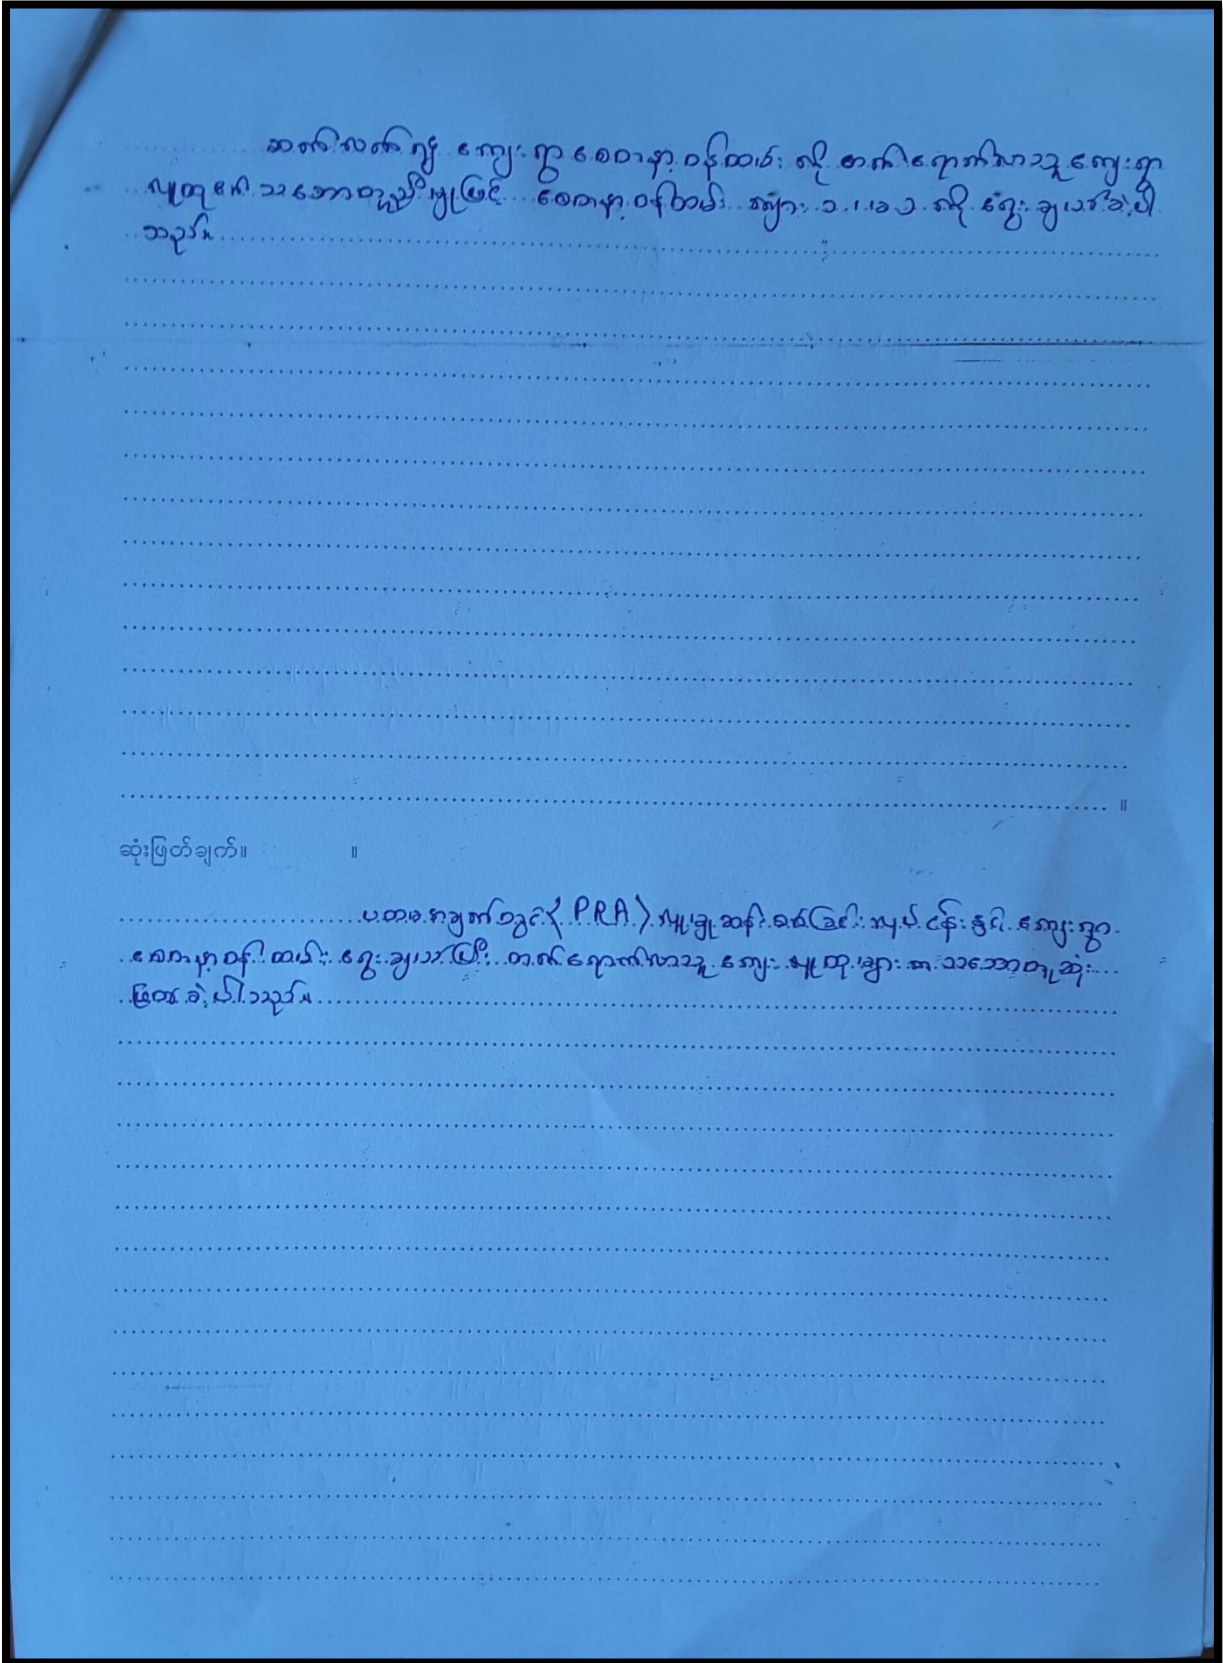 ဆက်လက်၍ ကျေးရွာစေတနာ့ဝန်ထမ်း ကို တက်ရောက်လာသူ ကျေးရွာ
လူထု၏ သဘောတူညီမှုဖြင့် စေတနာ့ဝန်ထမ်း ကို ရွေးချယ်ခဲ့ပါ
သည်။
။
ဆုံးဖြတ်ချက်။ ။
ပ.တ.မ.အချက်တွင် (PRA) လူမှုဆန်းစစ်ခြင်းလုပ်ငန်းနှင့် ကျေးရွာ
စေတနာ့ဝန်ထမ်း ရွေးချယ်ပြီး တက်ရောက်လာသူ ကျေး သဘောတူဆုံး
ဖြတ်ခဲ့ပါသည်။